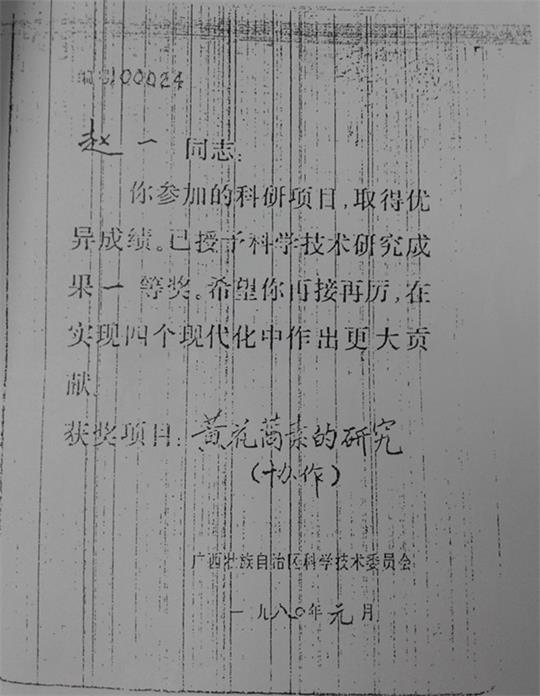 100024
赵一 同志:
你参加的科研项目,取得优
异成绩。已授予科学技术研究成
果一等奖。希望你再接再厉,在
实现四个现代化中作出更大贡
献.
获奖项目:黄花蒿素的研究
(协作)
广西壮族自治区科学技术委员会
一九八〇年元月